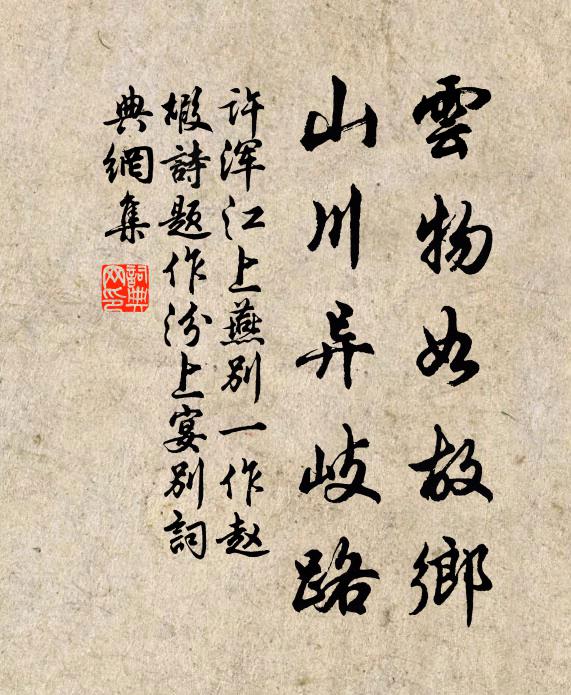 雲物如故鄉
山川异岐路
许渾江上燕别一作赵
嘏詩题作汾上宴别詞
典網集
詞典網印